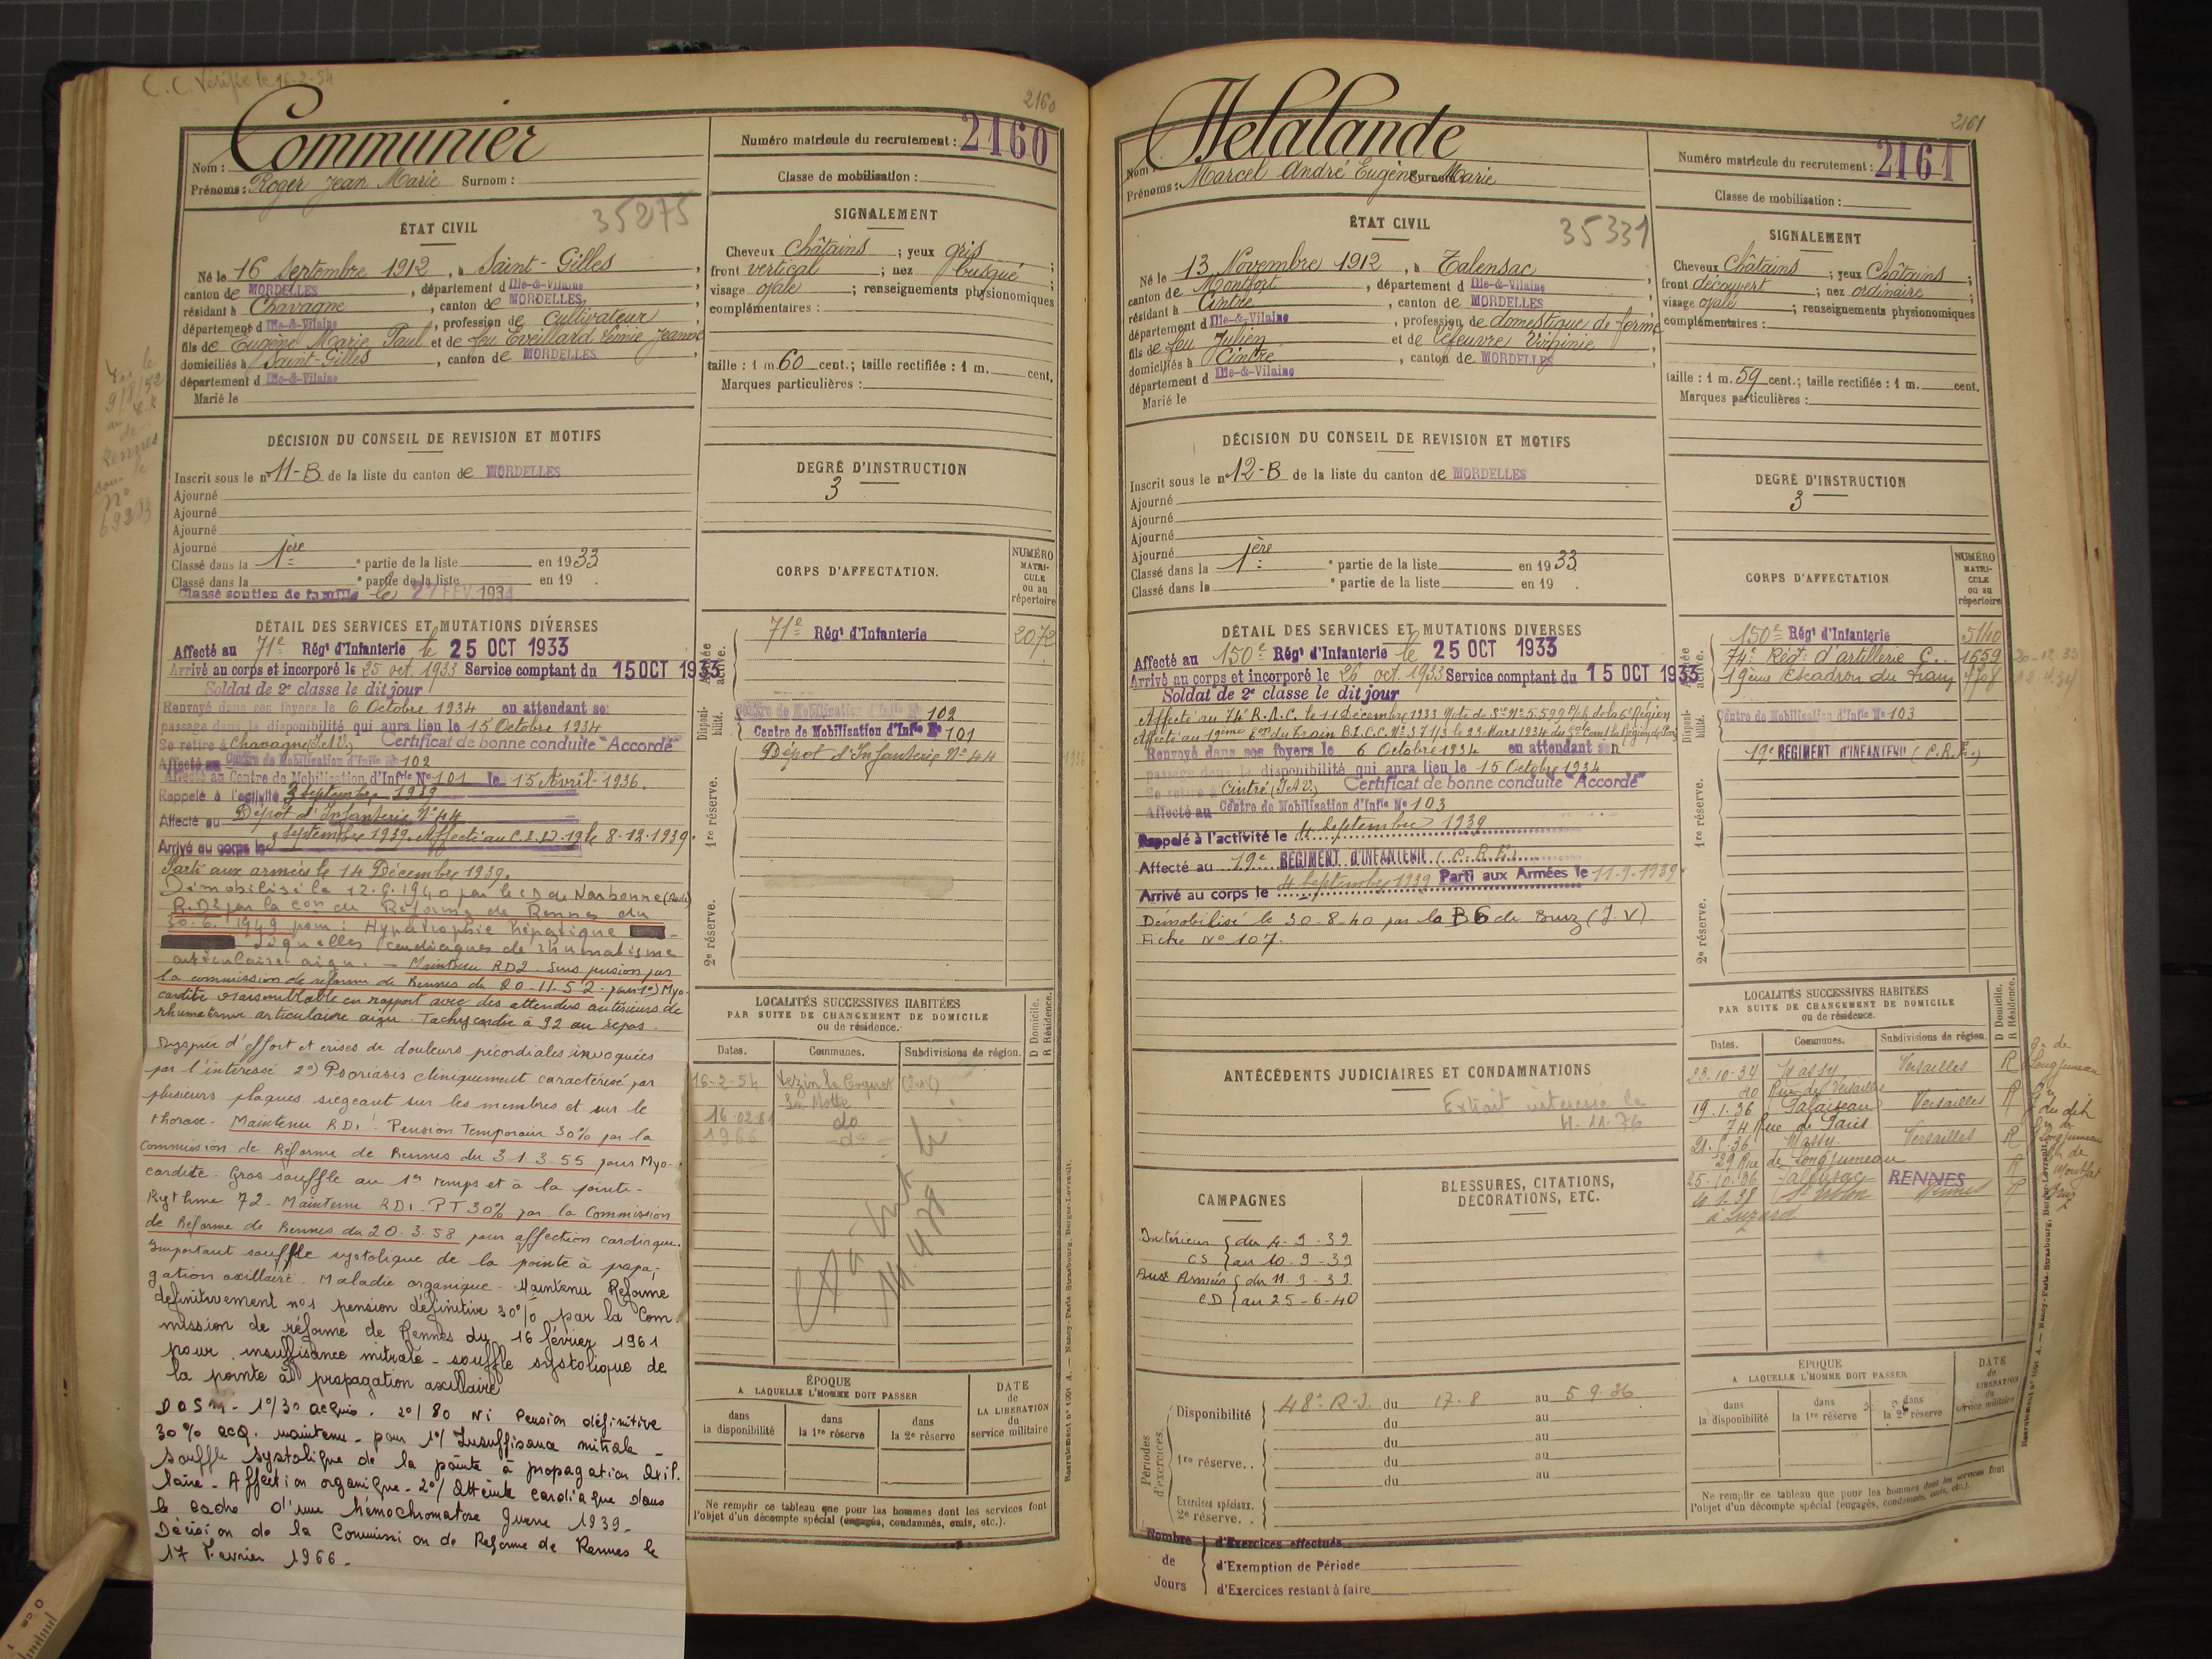 C. C. Vérifié le 16-2-54
2160
Nom : Communier
Prénoms : Roger Jean Marie Surnom :
Numéro matricule du recrutement : 2160
Classe de mobilisation :
ÉTAT CIVIL
35275
Né le 16 Septembre 1912, à Saint-Gilles,
canton de MORDELLES, département d Ille-&-Vilaine,
résidant à Chavagne, canton de MORDELLES,
département d Ille-&-Vilaine, profession de Cultivateur
fils de Eugène Marie Paul et de feu Eveillard Jeanne
domiciliés à Saint-Gilles, canton de MORDELLES,
département d Ille-&-Vilaine
Marié le
SIGNALEMENT
Cheveux Châtains ; yeux gris ;
front vertical ; nez busqué ;
visage ovale ; renseignements physionomiques
complémentaires :
taille : 1 m. 60 cent. ; taille rectifiée : 1 m. cent.
Marques particulières :
9/8/52
au
de
Rennes
sous
le
n°
69203
DÉCISION DU CONSEIL DE REVISION ET MOTIFS
Inscrit sous le n° 11-B de la liste du canton de MORDELLES
Ajourné
Ajourné
Ajourné
Ajourné
Classé dans la 1ère partie de la liste en 1933
Classé dans la partie de la liste en 19 .
Classé soutien de famille le 27 FEV. 1934
DEGRÉ D'INSTRUCTION
3
DÉTAIL DES SERVICES ET MUTATIONS DIVERSES
Affecté au 71e Régt d'Infanterie le 25 OCT 1933
Arrivé au corps et incorporé le 25 oct. 1933 Service comptant du 15 OCT 1933
Soldat de 2e classe le dit jour
Renvoyé dans ses foyers le 6 Octobre 1934 en attendant so
passage dans la disponibilité qui aura lieu le 15 Octobre 1934
Se retire à Chavagne (I.&V.) Certificat de bonne conduite "Accordé"
Affecté au Centre de Mobilisation d'Infie N° 102
Affecté au Centre de Mobilisation d'Infrie N° 101 le 15 Avril 1936.
Rappelé à l'activité 3 Septembre 1939
Affecté au Dépôt d'Infanterie N° 44
Arrivé au corps le 3 Septembre 1939. Affecté au C.I.D. 19 le 8-12-1939.
Parti aux armées le 14 Décembre 1939.
Démobilisé le 12.9.1940 par le CD de Narbonne (Aude)
R.D2 par la Con de Réforme de Rennes du
30.6.1949 pour : Hypertrophie hépatique
séquelles cardiaques de rhumatisme
articulaire aigu. - Maintenu RD2. Sans pension par
la commission de réforme de Rennes du 20-11-52 pour : 1°) Myo-
cardite vraisemblable en rapport avec des attendus antérieurs de
rhumatisme articulaire aigu. Tachycardie à 92 au repos.
Dyspnée d'effort et crises de douleurs précordiales invoquées
par l'intéressé 2°) Psoriasis cliniquement caractérisé par
plusieurs plaques siégeant sur les membres et sur le
thorax. Maintenu RD1 - Pension Temporaire 30% par la
Commission de Réforme de Rennes du 31.3.55 pour Myo-
cardite. Gros souffle au 1er temps et à la pointe.
Rythme 72. Maintenu RD1 - PT 30% par la Commission
de Réforme de Rennes du 20.3.58 pour affection cardiaque.
Important souffle systolique de la pointe à propa-
gation axillaire. Maladie organique - Maintenu Réforme
definitivement n°1 pension définitive 30% par la Com
mission de réforme de Rennes du 16 février 1961
pour insuffisance mitrale - souffle systolique de
la pointe à propagation axillaire
1°/30 acquis. 2°/80 Ni Pension définitive
30% acq. maintenu - pour 1°/ Insuffisance mitrale -
Souffle systolique de la pointe à propagation axil.
laire - Affection organique - 2°/ Atteinte cardiaque dans
le cadre d'une hémochromatose Guerre 1939 -
Décision de la Commission de Réforme de Rennes le
17 Fevrier 1966 -
CORPS D'AFFECTATION.
NUMÉRO MATRICULE ou au répertoire
Armée active.
71e Régt d'Infanterie 2072
Disponibilité.
Centre de Mobilisation d'Infie N° 102
Centre de Mobilisation d'Infie N° 101
1re réserve.
Dépôt d'Infanterie N° 44
2e réserve.
LOCALITÉS SUCCESSIVES HABITÉES
PAR SUITE DE CHANGEMENT DE DOMICILE
ou de résidence.
Dates. Communes. Subdivisions de région. D Domicile. R Résidence.
16-2-54 Vezin le Coquet (I&V)
La Motte
16.02.61 do
1966 - do -
ÉPOQUE
A LAQUELLE L'HOMME DOIT PASSER
dans la disponibilité
dans la 1re réserve
dans la 2e réserve
DATE de LA LIBÉRATION du service militaire
Ne remplir ce tableau que pour les hommes dont les services font
l'objet d'un décompte spécial (engagés, condamnés, omis, etc.).
2161
Nom : Delalande
Prénoms : Marcel André Eugène Surnom : Marie
Numéro matricule du recrutement : 2161
Classe de mobilisation :
ÉTAT CIVIL
35331
Né le 13 Novembre 1912, à Talensac
canton de Montfort, département d Ille-&-Vilaine
résidant à Cintré, canton de MORDELLES
département d Ille-&-Vilaine, profession de domestique de ferme
fils de feu Julien et de Lefeuvre Virginie,
domiciliés à Cintré, canton de MORDELLES
département d Ille-&-Vilaine
Marié le
SIGNALEMENT
Cheveux Châtains ; yeux Châtains ;
front découvert ; nez ordinaire ;
visage ovale ; renseignements physionomiques
complémentaires :
taille : 1 m. 59 cent. ; taille rectifiée : 1 m. cent.
Marques particulières :
DÉCISION DU CONSEIL DE REVISION ET MOTIFS
Inscrit sous le n° 12-B de la liste du canton de MORDELLES
Ajourné
Ajourné
Ajourné
Ajourné
Classé dans la 1ère partie de la liste en 1933
Classé dans la partie de la liste en 19 .
DEGRÉ D'INSTRUCTION
3
DÉTAIL DES SERVICES ET MUTATIONS DIVERSES
Affecté au 150e Régt d'Infanterie le 25 OCT 1933
Arrivé au corps et incorporé le 26 oct. 1933 Service comptant du 15 OCT 1933
Soldat de 2e classe le dit jour
Affecté au 74e R.A.C. le 11 Décembre 1933 Note de Sce N° 5.599 de la 6e Région
Affecté au 19ème Eon du Train le 23 Mars 1934
Renvoyé dans ses foyers le 6 Octobre 1934 en attendant son
passage dans la disponibilité qui aura lieu le 15 Octobre 1934
Se retire à Cintré (I.&V.) Certificat de bonne conduite "Accordé"
Affecté au Centre de Mobilisation d'Infie N° 103
Rappelé à l'activité le 4 Septembre 1939
Affecté au 19e REGIMENT D'INFANTERIE (C.R.E.)
Arrivé au corps le 4 Septembre 1939 Parti aux Armées le 11-9-1939.
Démobilisé le 30-8-40 par la B6 de Bruz (I.V)
Fiche N° 107.
CORPS D'AFFECTATION
NUMÉRO MATRICULE ou au répertoire
Armée active.
150e Régt d'Infanterie 5140
74e Régt d'artillerie C. 1659 20-12-33
19ème Escadron du Train
Disponibilité.
Centre de Mobilisation d'Infie N° 103
1re réserve.
19e REGIMENT D'INFANTERIE (C.R.E.)
2e réserve.
ANTÉCÉDENTS JUDICIAIRES ET CONDAMNATIONS
Extrait intéressé le
4.11.76
CAMPAGNES
Intérieur { du 4-9-39
CS } au 10-9-39
Aux Armées { du 11-9-39
CD } au 25-6-40
BLESSURES, CITATIONS,
DÉCORATIONS, ETC.
LOCALITÉS SUCCESSIVES HABITÉES
PAR SUITE DE CHANGEMENT DE DOMICILE
ou de résidence.
Dates. Communes. Subdivisions de région. D Domicile. R Résidence.
23-10-34 Massy Versailles R
do Rue de Versailles
19.1.36 Palaiseau Versailles R
74 Rue de Paris
21.5.36 Massy. Versailles R
29 Rue de Longjumeau
25.10.36 Talensac RENNES R
4.1.38 Rennes R
Périodes d'exercices.
Disponibilité 48e R.I. du 17-8 au 5-9-36
du au
du au
1re réserve. . du au
du au
Exercices spéciaux.
2e réserve. .
Nombre de Jours
d'Exercices effectués
d'Exemption de Période
d'Exercices restant à faire
ÉPOQUE
A LAQUELLE L'HOMME DOIT PASSER
dans la disponibilité
dans la 1re réserve
dans la 2e réserve
DATE de LIBÉRATION du service militaire
Ne remplir ce tableau que pour les hommes dont les services font
l'objet d'un décompte spécial (engagés, condamnés, omis, etc.).